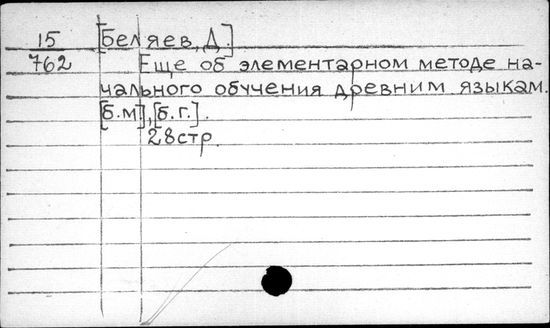 15 [Беляев, Д.]
762 Еще об элементарном методе на-
чального обучения древним языкам.
[б.м], [б.г.].
28стр.